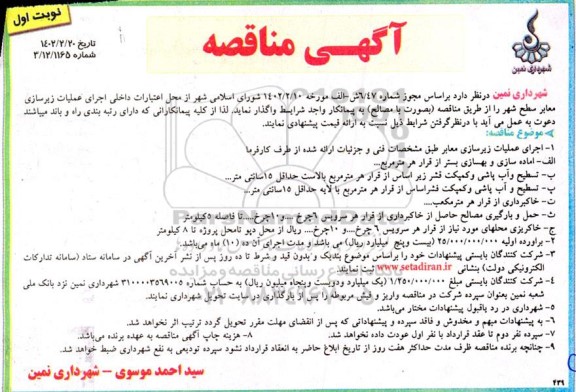 نوبت اول
آگهی مناقصه
شهرداری نمین
تاریخ ۱۴۰۲/۲/۲۰
شماره ۳/۱۲/۱۱۶۵
شهرداری نمین درنظر دارد براساس مجوز شماره ۶/۴۷ش-الف مورخه ۱۴۰۲/۲/۱۰ شورای اسلامی شهر از محل اعتبارات داخلی اجرای عملیات زیرسازی
معابر سطح شهر را از طریق مناقصه (بصورت با مصالح) به پیمانکار واجد شرایط واگذار نماید. لذا از کلیه پیمانکارانی که دارای رتبه بندی راه و باند میباشند
دعوت به عمل می آید با درنظرگرفتن شرایط ذیل نسبت به ارائه قیمت پیشنهادی نمایند.
موضوع مناقصه:
۱- اجرای عملیات زیرسازی معابر طبق مشخصات فنی و جزئیات ارائه شده از طرف کارفرما
الف- اماده سازی و بهسازی بستر از قرار هر مترمربع...
ب- تسطیح و آب پاشی وکمپکت قشر زیر اساس از قرار هر مترمربع بالاست حداقل ۱۵سانتی متر...
پ- تسطیح و آب پاشی وکمپکت قشراساس از قرار هر مترمربع با لایه حداقل ۱۵سانتی متر...
ت- خاکبرداری از قرار هر مترمکعب...
ث- حمل و بارگیری مصالح حاصل از خاکبرداری از قرار هر سرویس ۶چرخ...و۱۰چرخ...تا فاصله ۵کیلومتر
ج- خاکریزی محلهای مورد نیاز از قرار هر سرویس ۶ چرخ...و ۱۰چرخ.... ریال از محل دپو تامحل پروژه تا ۸ کیلومتر
۲- براورده اولیه ۲۵/۰۰۰/۰۰۰/۰۰۰ (بیست وپنج میلیارد ریال) می باشد و مدت اجرای آن ده (۱۰) ماه می‌باشد.
۳- شرکت کنندگان بایستی پیشنهادات خود را براساس موضوع بندیک و بدون قید و شرط تا ده روز پس از نشر آخرین آگهی در سامانه ستاد (سامانه تدارکات
الکترونیکی دولت) بنشانی www.setadiran.ir ثبت نمایند.
۴- شرکت کنندگان بایستی مبلغ ۱/۲۵۰/۰۰۰/۰۰۰ (یک میلیارد ودویست وپنجاه میلیون ریال) به حساب شماره ۳۱۰۰۰۰۳۵۶۹۰۰۵ شهرداری نمین نزد بانک ملی
شعبه نمین بعنوان سپرده شرکت در مناقصه واریز و فیش مربوطه را پس از بارگذاری در سایت تحویل شهرداری نمایند.
۵- شهرداری در رد یاقبول پیشنهادات مختار می‌باشد.
۶- به پیشنهادات مبهم و مخدوش و فاقد سپرده و پیشنهاداتی که پس از انقضای مهلت مقرر تحویل گردد ترتیب اثر نخواهد شد.
۷- سپرده نفر دوم تا عقد قرارداد با نفر اول عودت داده نخواهد شد. ۸- هزینه چاپ آگهی مناقصه به عهده برنده می‌باشد.
۹- چنانچه برنده مناقصه ظرف مدت حداکثر هفت روز از تاریخ ابلاغ حاضر به انعقاد قرارداد نشود سپرده تودیعی به نفع شهرداری ضبط خواهد شد.
سید احمد موسوی - شهرداری نمین
۴۳۹